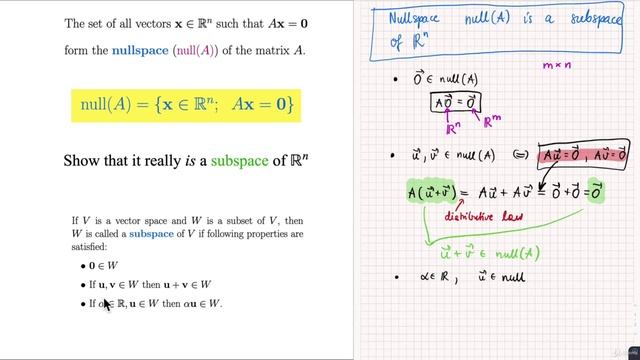 The set of all vectors x ∈ ℝⁿ such that Ax = 0
form the nullspace (null(A)) of the matrix A.
null(A) = {x ∈ ℝⁿ; Ax = 0}
Show that it really is a subspace of ℝⁿ
If V is a vector space and W is a subset of V, then
W is called a subspace of V if following properties are
satisfied:
• 0 ∈ W
• If u, v ∈ W then u + v ∈ W
• If α ∈ ℝ, u ∈ W then αu ∈ W.
Nullspace null(A) is a subspace
of ℝⁿ
m × n
• 0⃗ ∈ null(A)
A0⃗ = 0⃗
ℝⁿ ℝᵐ
• u⃗, v⃗ ∈ null(A) ⇔ Au⃗ = 0⃗, Av⃗ = 0⃗
A(u⃗ + v⃗) = Au⃗ + Av⃗ = 0⃗ + 0⃗ = 0⃗
distributive law
u⃗ + v⃗ ∈ null(A)
• α ∈ ℝ, u⃗ ∈ null